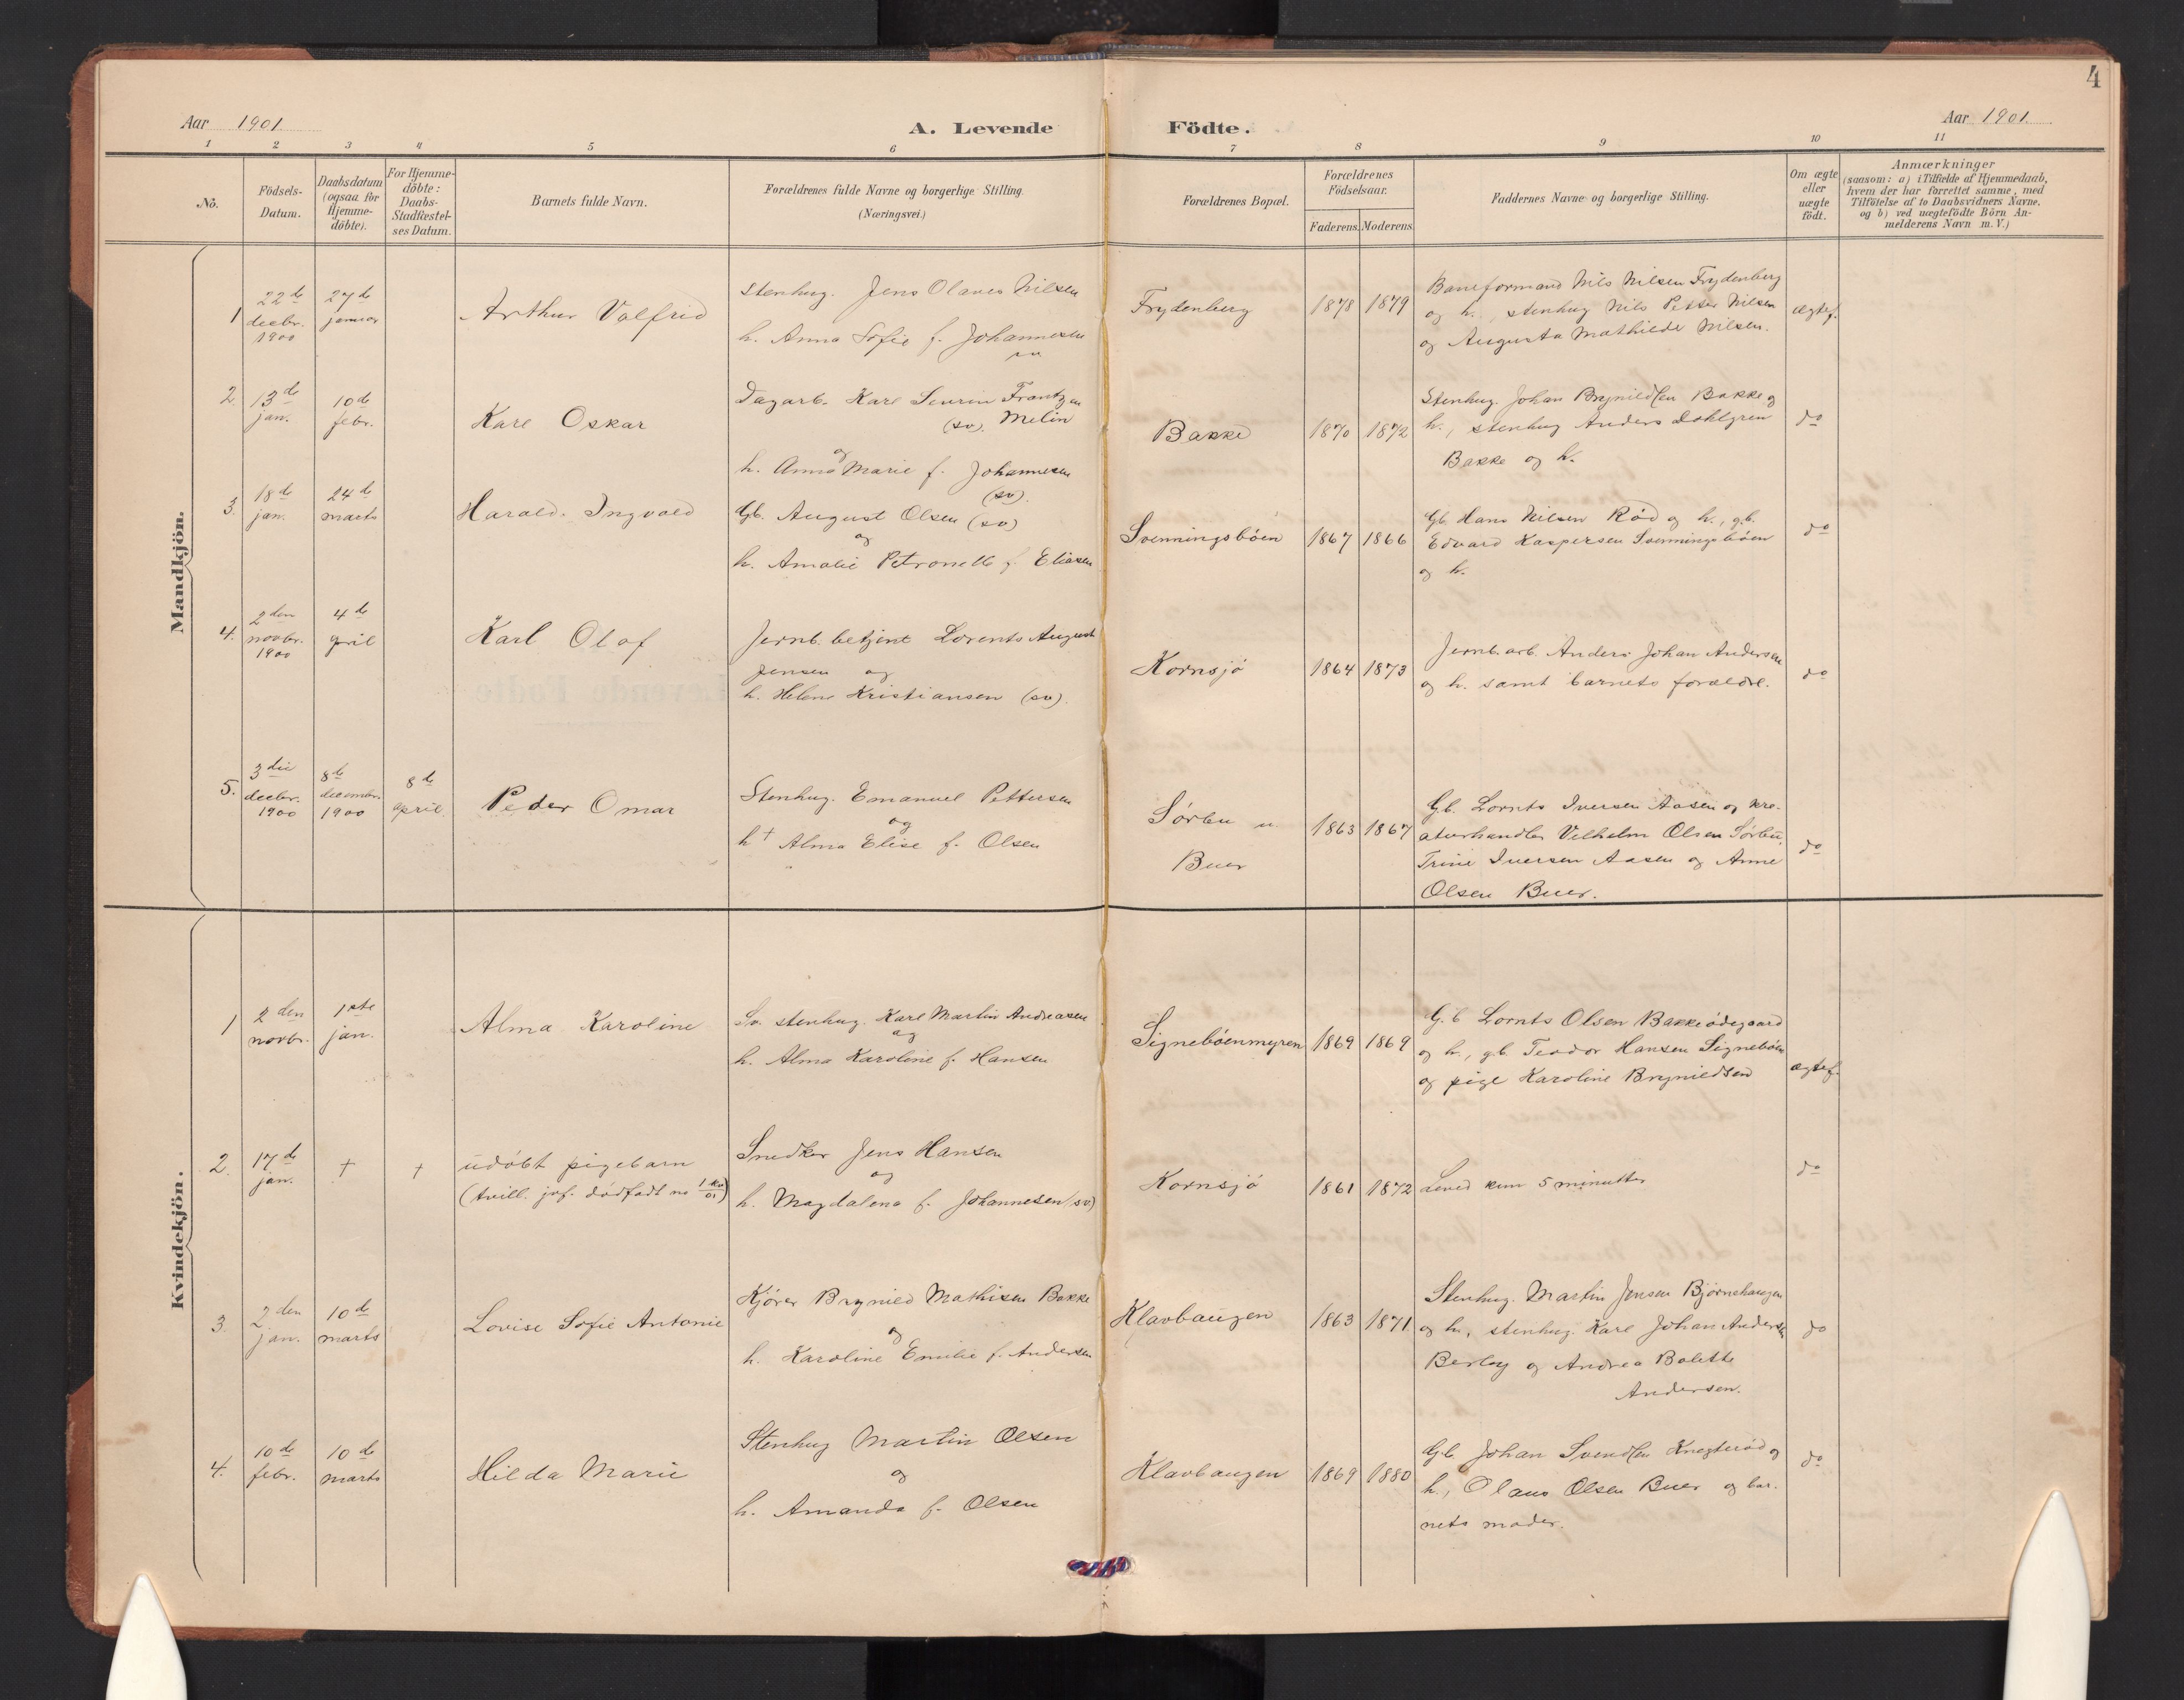 4
Aar 1901.
A. Levende Födte.
Aar 1901.
1 2 3 4 5 6 7 8 9 10 11
No.
Födsels-Datum.
Daabsdatum (ogsaa for Hjemme-döbte).
For Hjemme-döbte: Daabs-Stadfæstel-ses Datum.
Barnets fulde Navn.
Forældrenes fulde Navne og borgerlige Stilling.
(Næringsvei.)
Forældrenes Bopæl.
Forældrenes Födselsaar.
Faderens. Moderens.
Faddernes Navne og borgerlige Stilling.
Om ægte eller uægte födt.
Anmærkninger
(saasom: a) i Tilfælde af Hjemmedaab,
hvem der har forrettet samme, med
Tilföielse af to Daabsvidners Navne.
og b) ved uægtefödte Börn An-
melderens Navn m. V.)
Mandkjön.
1 22de decbr. 1900
27de januar
Arthur Valfrid
Stenhug. Jens Olaves Nilsen
h. Anna Sofie f. Johannesen
sv.
Frydenberg
1878 1879
Baneformand Nils Nilsen Frydenberg
og h., stenhug Nils Petter Nilsen
og Augusta Mathilde Nilsen.
ægtef.
2. 13de jan.
10de febr.
Karl Oskar
Dagarb. Karl Severin Frantzen
(sv). Melin
og
h. Anna Marie f. Johannesen
(sv).
Bakke
1870 1872
Stenhug. Johan Brynildsen Bakke og
h., stenhug Anders Dahlgren
Bakke og h.
do
3. 18de jan.
24de marts
Harald Ingvald
Gb. August Olsen (sv)
og
h. Amalie Petronelle f. Eliasen
Svenningsbøen
1867 1866
Gb. Hans Nilsen Rød og h., g.b.
Edvard Kaspersen Svenningsbøen
og h.
do
4. 2den novbr. 1900
4de april
Karl Olof
Jernb. betjent Lorents August
Jensen og
h. Helene Kristiansen (sv).
Kornsjø
1864 1873
Jernb. arb. Anders Johan Andersen
og h. samt barnets forældre.
do
5. 3die decbr. 1900
8de decembr. 1900
8de april
Peder Omar
Stenhug. Emanuel Pettersen
og
h † Alma Elise f. Olsen
Sørbu u.
Buer
1863 1867
Gb. Lornts Iversen Aasen og kre-
aturhandler Vilhelm Olsen Sørbu,
Trine Iversen Aasen og Anne
Olsen Buer.
do
Kvindekjön.
1 2den novbr.
1ste jan.
Alma Karoline
Sv. stenhug. Karl Martin Andreasen
og
h. Alma Karoline f. Hansen
Signebøenmyren
1869 1869
G.b Lornts Olsen Bakkeødegaard
og h., gb. Teodor Hansen Signebøen
og pige Karoline Brynildsen
ægtef.
2. 17de jan.
† †
udøbt pigebarn
(tvill. jvf. dødfødt no 1 kv/01)
Snedker Jens Hansen
og
h. Magdalena f. Johannesen (sv)
Kornsjø
1861 1872
Leved kun 5 minutter
do
3. 2den jan.
10de marts
Lovise Sofie Antonie
Kjører Brynild Mathisen Bakke
og
h. Karoline Emilie f. Andersen
Klavhaugen
1863 1871
Stenhug. Martin Jensen Bjørnehaugen
og h., stenhug. Karl Johan Andersen
Berby og Andrea Bolette
Andersen.
do
4. 10de febr.
10de marts
Hilda Marie
Stenhug Martin Olsen
og
h. Amanda f. Olsen
Klavhaugen
1869 1880
Gb. Johan Svendsen Knegterød og
h., Olaus Olsen Buer og bar-
nets moder.
do